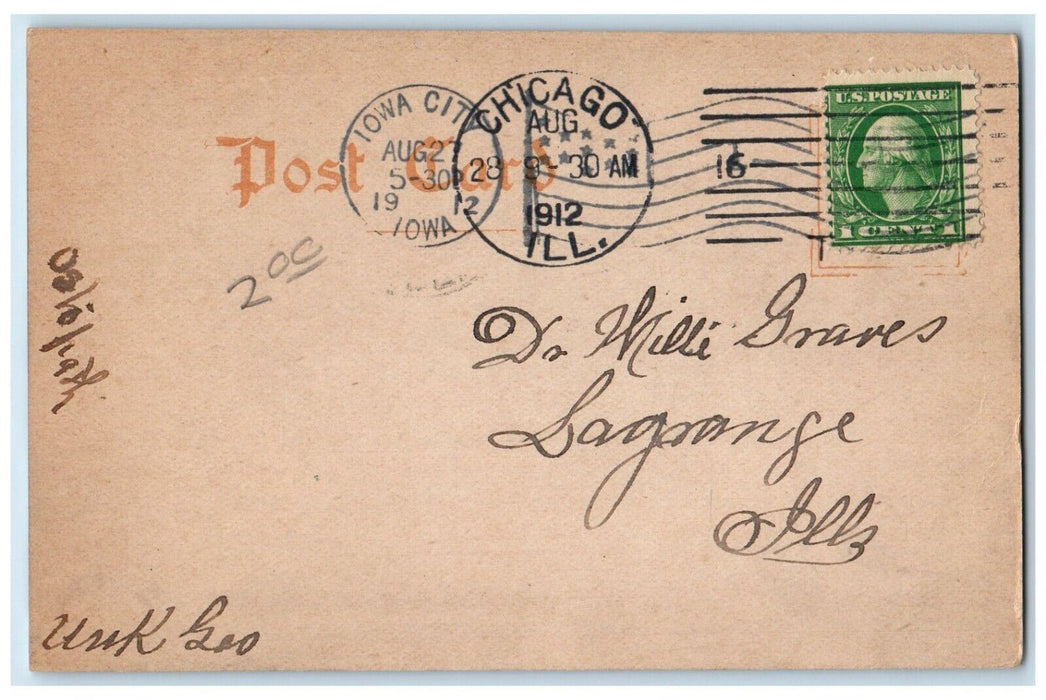 Post Card
IOWA CITY
AUG 27
5-30P
1912
IOWA
CHICAGO
AUG
28 9-30 AM
1912
ILL.
16
U.S. POSTAGE
1 CENT 1
2 00
Dr Willi Graves
Lagrange
Ills
Unk Geo